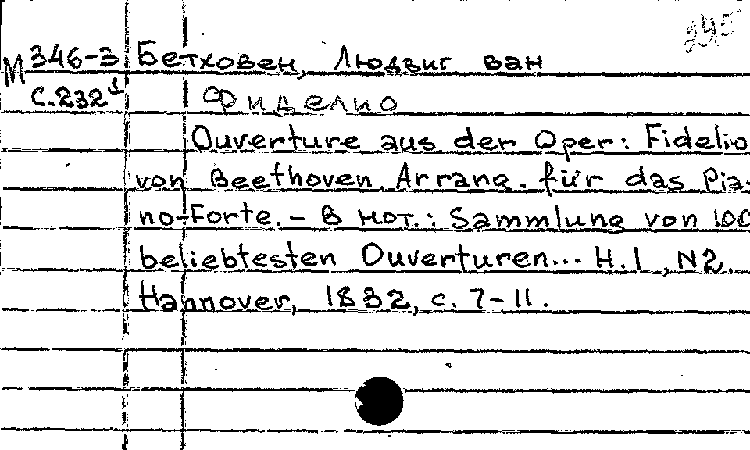 М 346-3 Бетховен, Людвиг ван
с.232¹ Фиделио
Ouverture aus der Oper: Fidelio
von Beethoven. Arrang. für das Pia-
no-Forte. – В нот.: Sammlung von 100
beliebtesten Ouverturen... H.1, N2.
Hannover, 1832, с. 7-11.